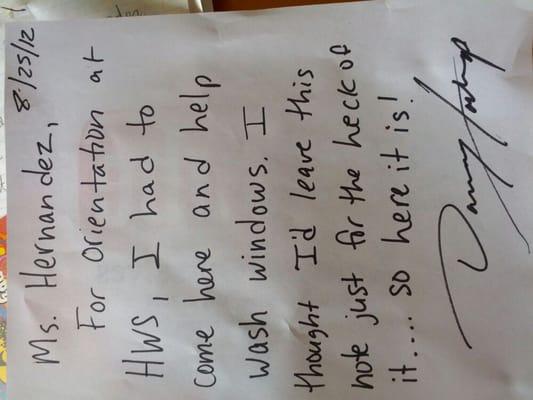 Ms. Hernandez, 8/25/12
For orientation at
HWS, I had to
come here and help
wash windows. I
thought I'd leave this
note just for the heck of
it.... so here it is!
Danny